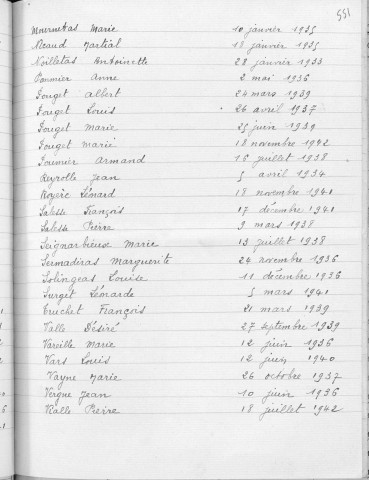 551
Mournetas Marie 10 janvier 1935
Nicaud Martial 18 janvier 1935
Noilletas Antoinette 28 janvier 1933
Pommier Anne 2 mai 1936
Pouget Albert 24 mars 1939
Pouget Louis 26 avril 1937
Pouget Marie 25 juin 1939
Pouget Marie 18 novembre 1942
Pounier Armand 15 juillet 1938
Reyrolle Jean 5 avril 1934
Royère Lénard 18 novembre 1941
Salesse François 17 décembre 1941
Salesse Pierre 9 mars 1938
Seignarbieux Marie 13 juillet 1938
Sermadiras Marguerite 24 novembre 1936
Solingeas Louise 11 décembre 1936
Surget Lénarde 5 mars 1941
Truchet François 21 mars 1939
Valle Désiré 27 septembre 1939
Vareille Marie 12 juin 1936
Vars Louis 12 juin 1940
Vayne Marie 26 octobre 1937
Vergne Jean 10 juin 1936
Vialle Pierre 18 juillet 1942